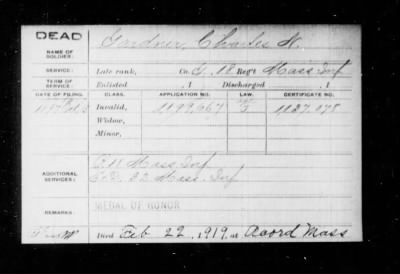 DEAD
NAME OF SOLDIER: Gardner, Charles N.
SERVICE: Late rank, Co. G, 18 Reg't Mass Inf
TERM OF SERVICE: Enlisted , 1 Discharged , 1
DATE OF FILING. CLASS. APPLICATION NO. LAW. CERTIFICATE NO.
Invalid, 1199.667 G 1127.978
Widow,
Minor,
ADDITIONAL SERVICES: Mass Inf
32 Mass. Inf
REMARKS: MEDAL OF HONOR
Died Feb 22, 1919, at Acord Mass